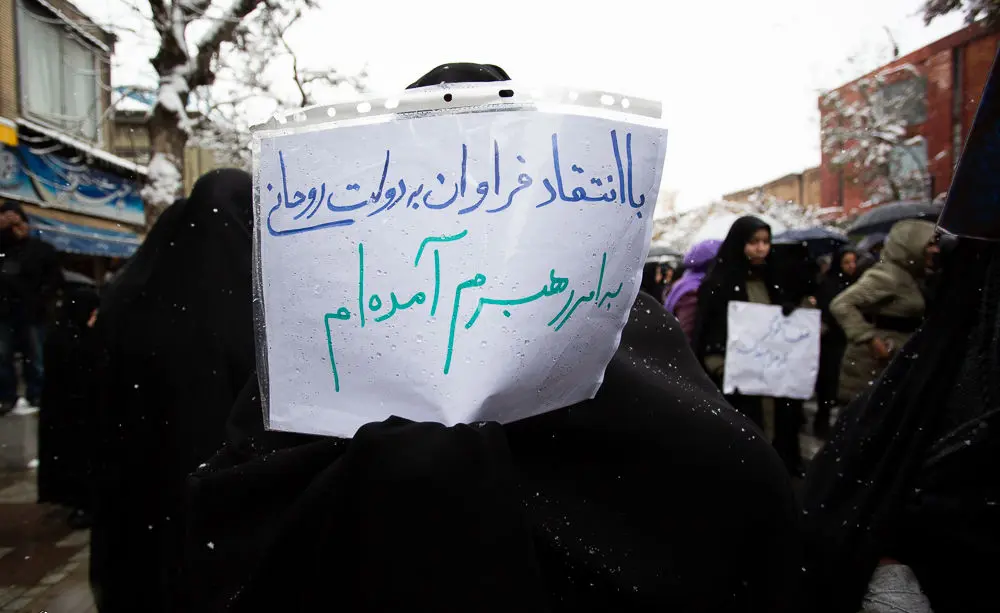 با انتقاد فراوان به دولت روحانی
به امر رهبرم آمده‌ام